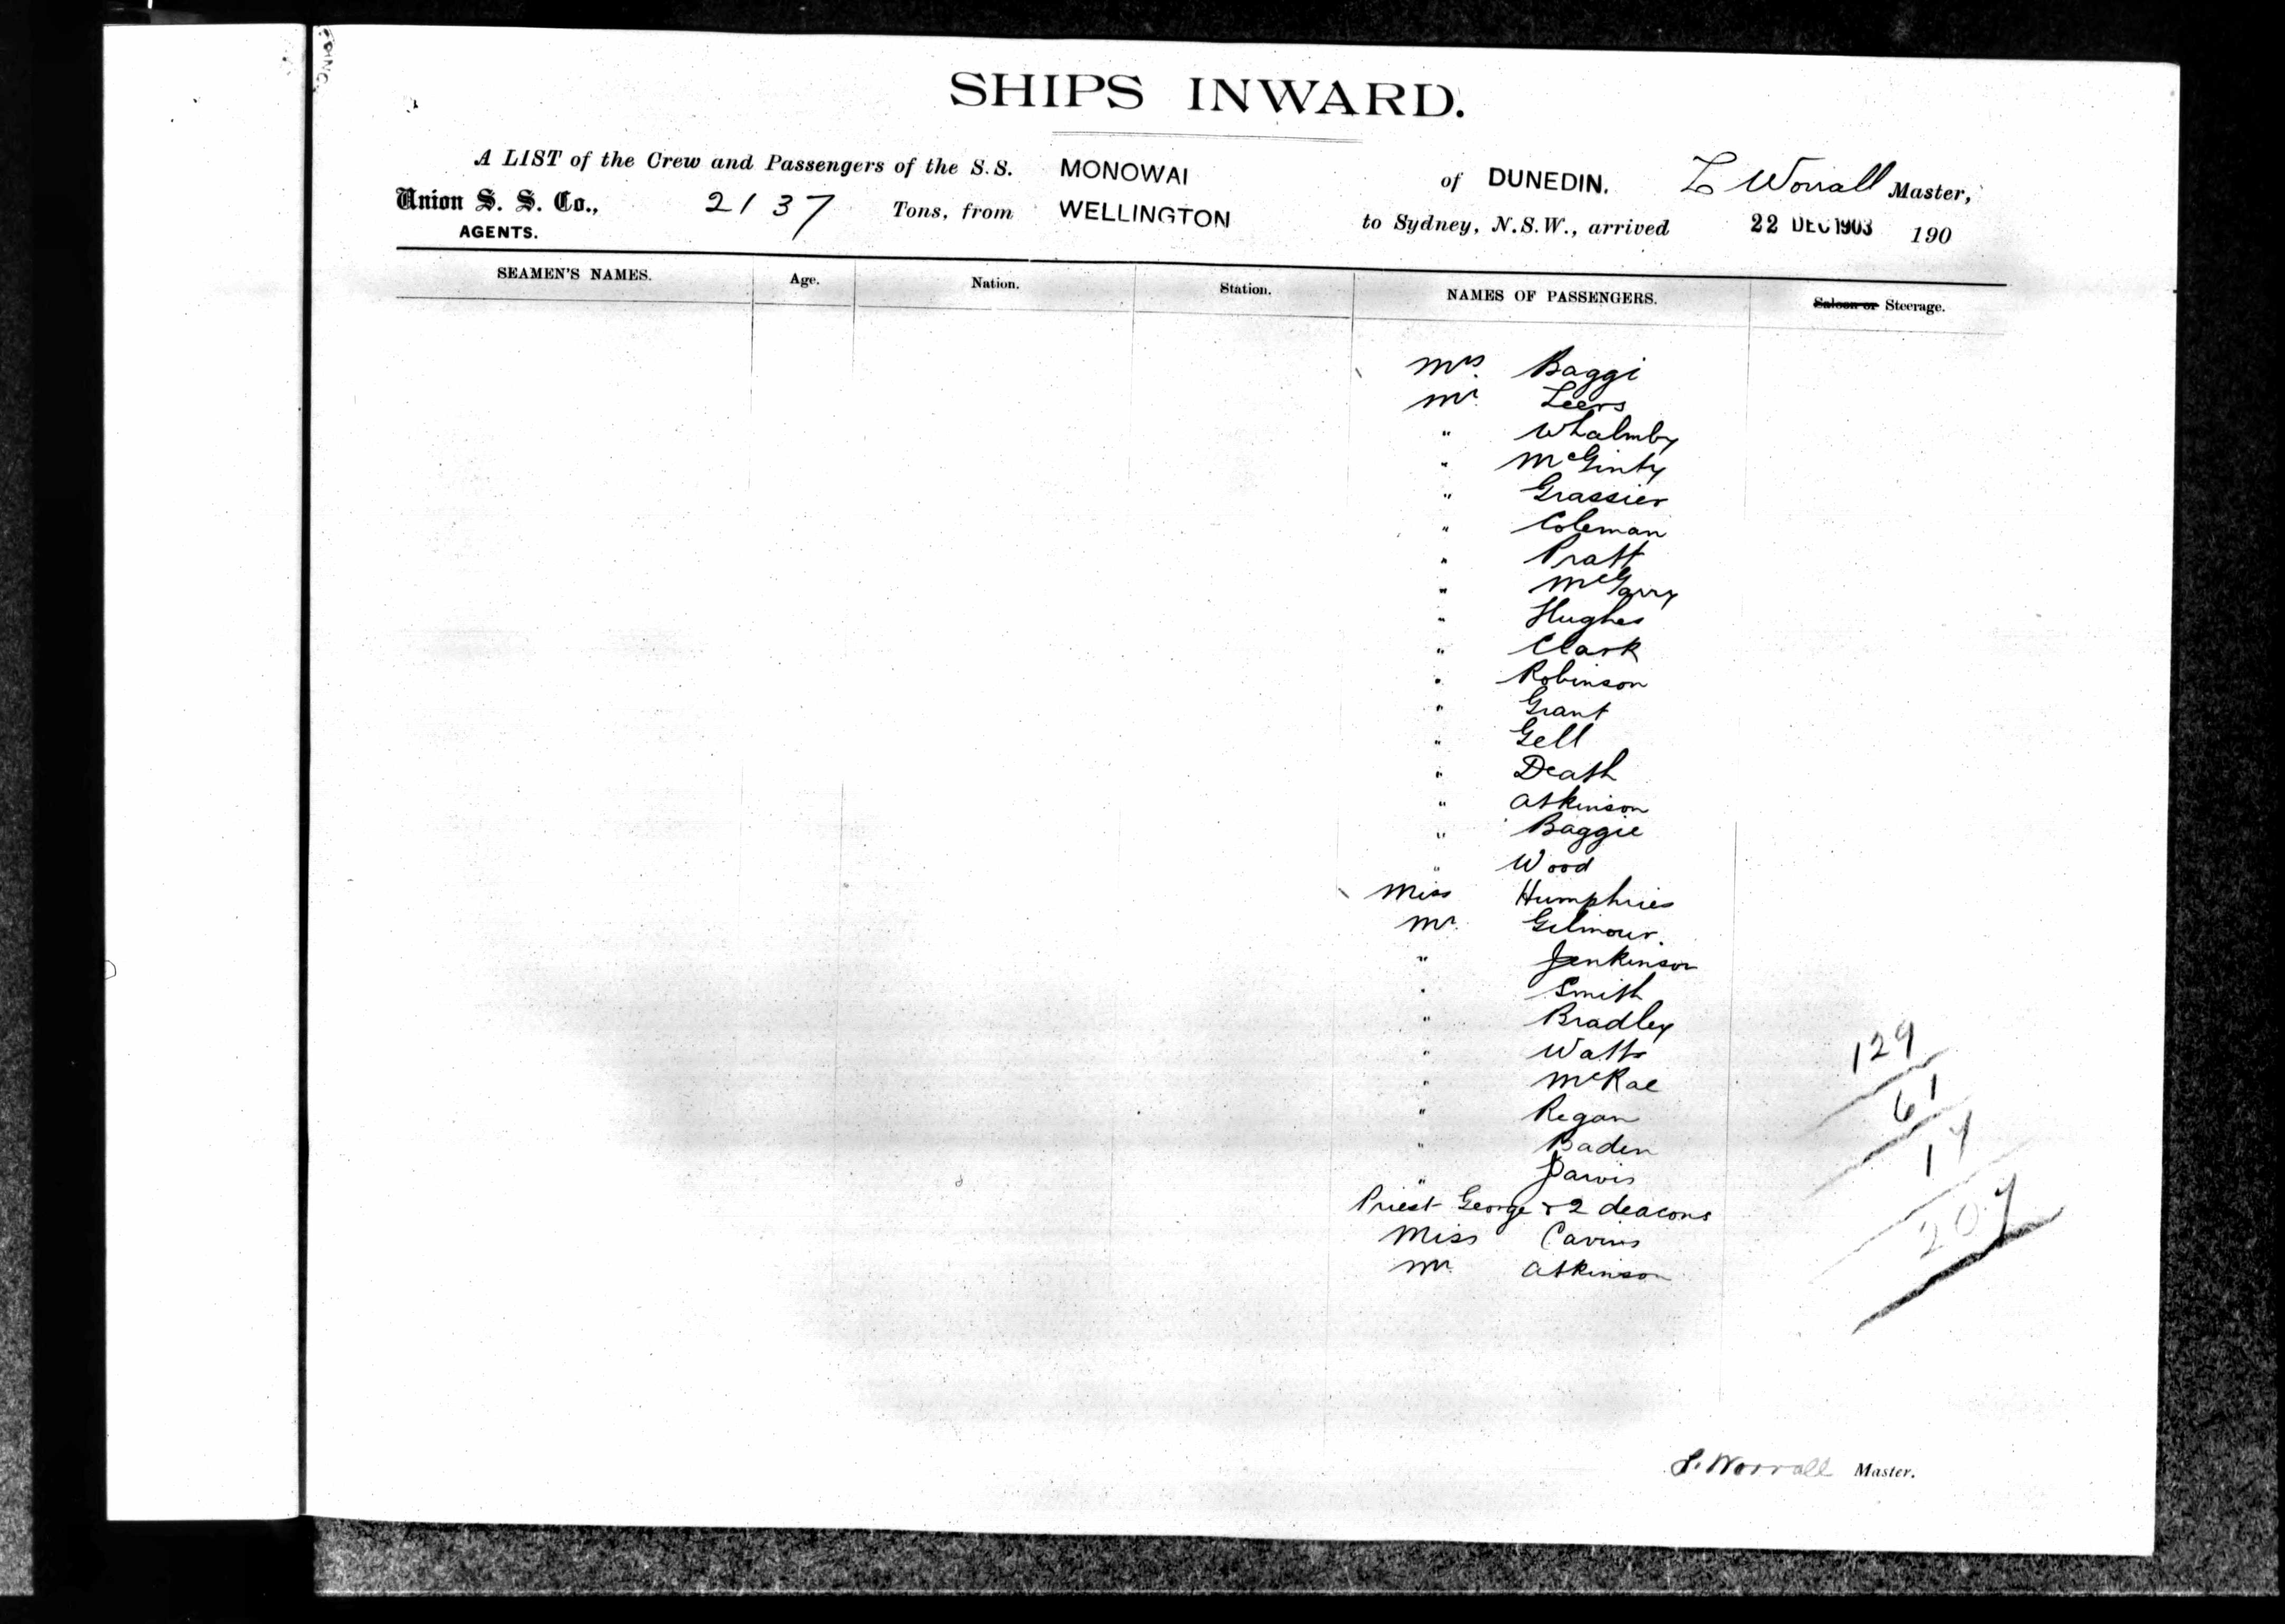 SHIPS INWARD.
A LIST of the Crew and Passengers of the S.S. MONOWAI of DUNEDIN. L Worrall Master,
Union S. S. Co., 2137 Tons, from WELLINGTON to Sydney, N.S.W., arrived 22 DEC 1903 190
AGENTS.
SEAMEN'S NAMES. Age. Nation. Station. NAMES OF PASSENGERS. Saloon or Steerage.
Mrs. Baggi
Mr. Leers
" Whalmby
" McGinty
" Grassier
" Coleman
" Pratt
" McGarry
" Hughes
" Clark
" Robinson
" Grant
" Gell
" Death
" Atkinson
" Baggie
" Wood
Miss Humphries
Mr. Gilmour.
" Jenkinson
" Smith
" Bradley
" Watts
" McRae
" Regan
" Baden
" Jarvis
Priest George & 2 deacons
Miss Cavins
Mr. Atkinson
129
61
17
207
L. Worrall Master.